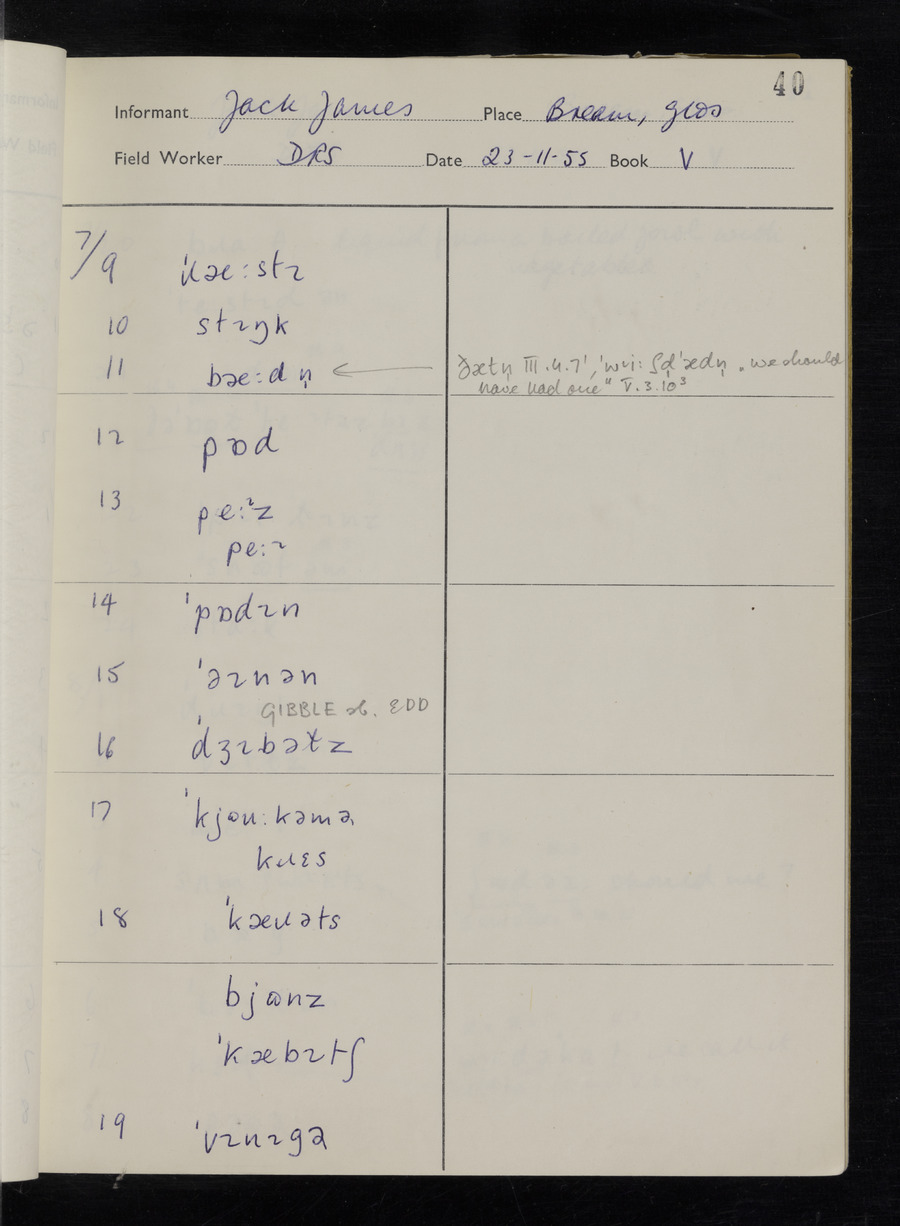 40
Informant Jack James Place Bream, Glos
Field Worker DRS Date 23-11-55 Book V
7/9 ˈɹæːstɪ
10 stɪŋk
11 bæːdn̩
ðætn̩ III.4.7', we should
have had one" V.3.10³
12 pɒd
13 peːᶦz
peːɪ
14 ˈpɒdɪn
15 ˈəɪnən
GIBBLE sb. EDD
16 ˈdʒɪbətz
17
kɹɛs
18 ˈkæɹəts
bjɒnz
ˈkæbɪtʃ
19 ˈvɪnɪgə